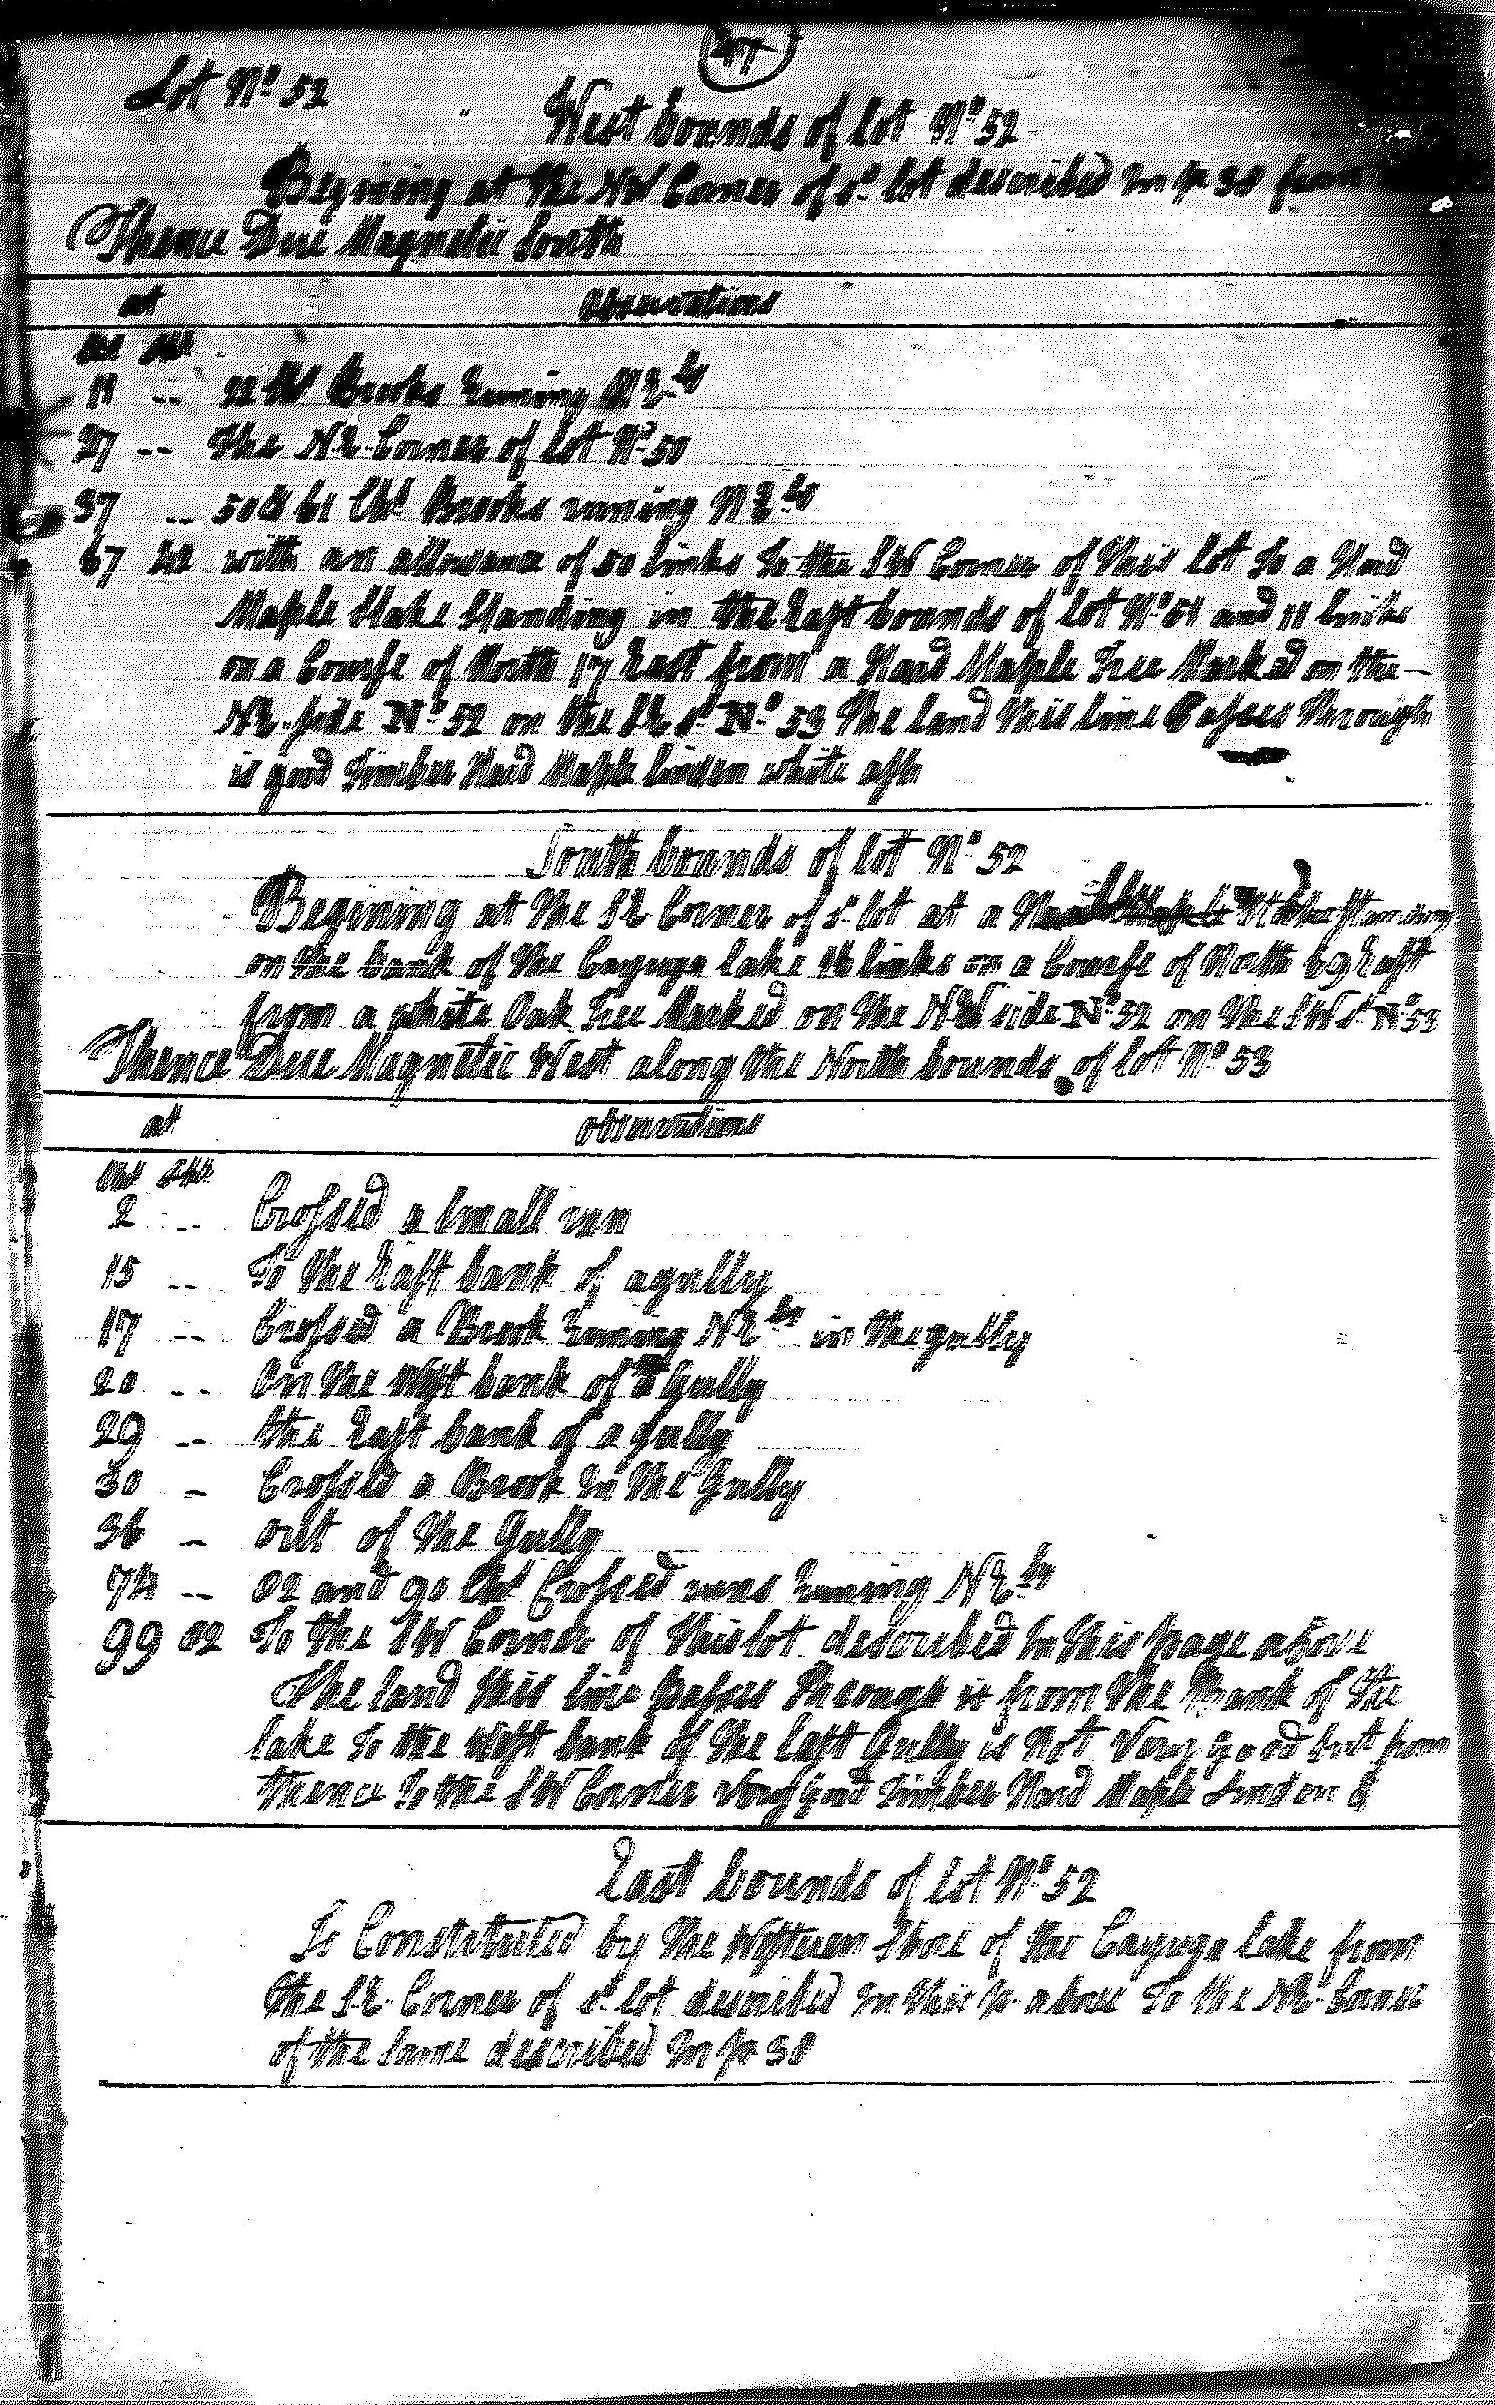 47
Lot No 52
West bounds of lot No 52
Begining at the NW Corner of sd lot described In pa 38 from
Thence Due Magnetic South
at observations
Chs Lks
11 -- 22 & Brooks Runing NEly
27 -- The NE Corner of lot No 50
37 -- 50 & 61 Chs Brooks runing NEly
67 with an allowance of 50 links To the SW Corner of this lot To a Hard
Maple Stake Standing in the East bounds of lot No 51 and 11 links
on a Course of North 17 East from a Hard Maple Tree Marked on the
NE side No 52 on the SE sd No 53 The land this line Passes through
is good Timber Hard Maple linden white ash
South bounds of lot No 52
Begining at the SE Corner of sd lot at a Stake Standing
on the bank of the Cayuga lake 16 links on a Course of North 69 East
from a white Oak Tree Marked on the NW side No 52 on the SW sd No 53
Thence Due Magnetic West along the North bounds of lot No 53
at observations
Chs Lks
2 -- Crossed a Small run
15 -- To the East bank of a gully
17 -- Crossed a Brook Runing NEly in the gully
20 -- On the West bank of Gully
29 -- the East bank of a gully
30 - Crossed a Brook In the Gully
36 - out of the Gully
74 -- 82 and 90 Chs Crossed runs Runing NEly
99 02 To the SW Corner of this lot described In this page above
The land this line Passes through is from the Bank of the
lake To the West bank of the last Gully is Not Very good but from
thence To the SW Corner Very good Timber Hard Maple linden &
East bounds of lot No 52
Is Constituted by the Western Shore of the Cayuga lake from
the SE Corner of sd lot described In this pa above To the NE Corner
of the same described In pa 38